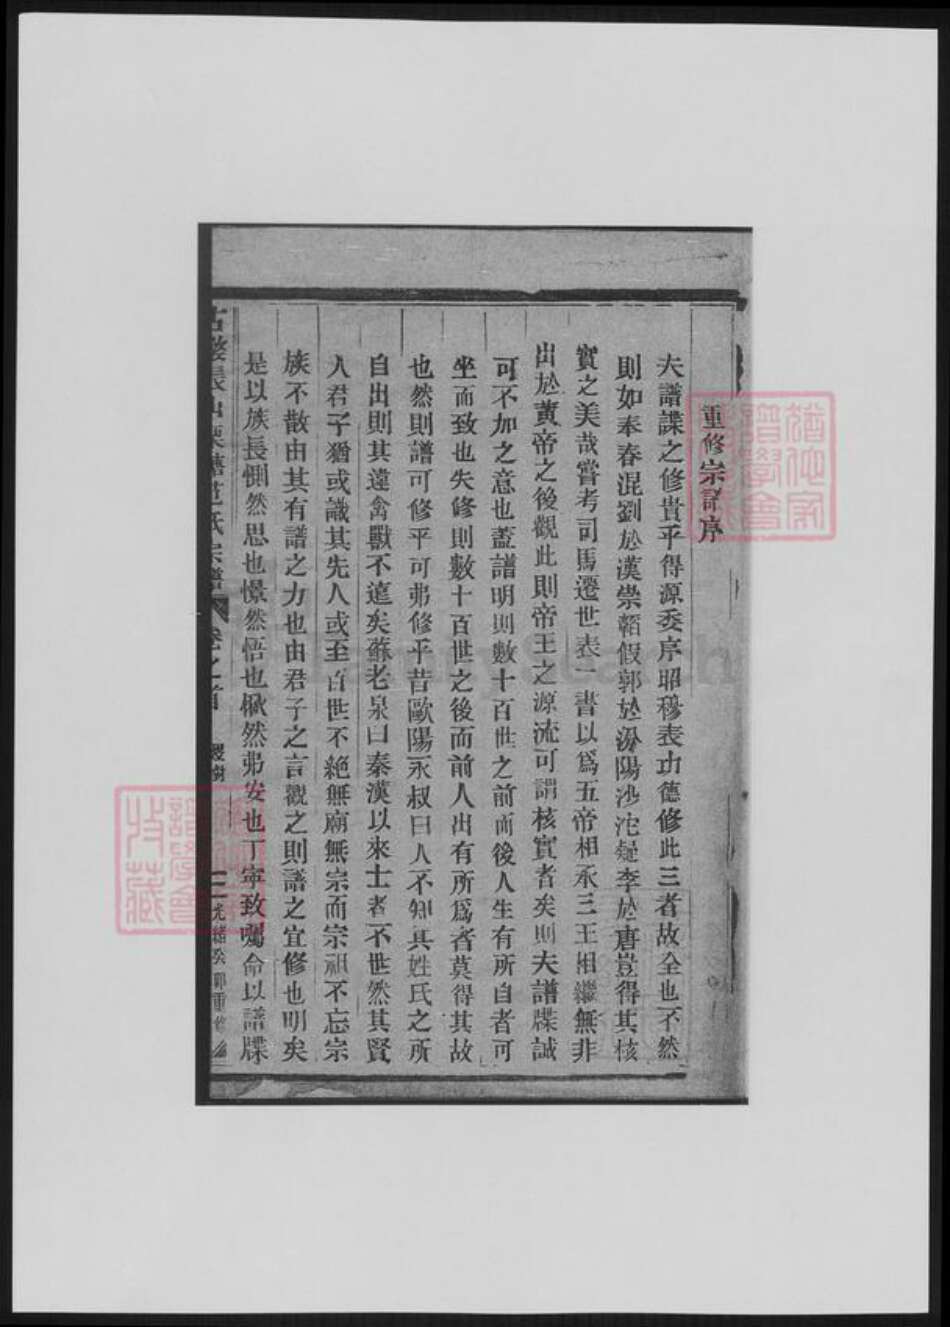 重修宗譜序
夫譜諜之修貴乎得源委序昭穆表功德修此三者故全也不然
則如奉春混劉於漢崇韜假郭於汾陽沙沱疑李於唐豈得其核
實之美哉嘗考司馬遷世表一書以爲五帝相承三王相繼無非
出於黃帝之後觀此則帝王之源流可謂核實者矣則夫譜牒誠
可不加之意也蓋譜明則數十百世之前而後人生有所自者可
坐而致也失修則數十百世之後而前人出有所爲者莫得其故
也然則譜可修乎可弗修乎昔歐陽永叔曰人不知其姓氏之所
自出則其違禽獸不遠矣蘇老泉曰秦漢以來士者不世然其賢
人君子猶或識其先人或至百世不絕無廟無宗而宗祖不忘宗
族不散由其有譜之力也由君子之言觀之則譜之宜修也明矣
是以族長惻然思也憬然悟也愀然弗安也丁寧致囑命以譜牒
范氏宗譜 卷之首 光緒癸卯重修